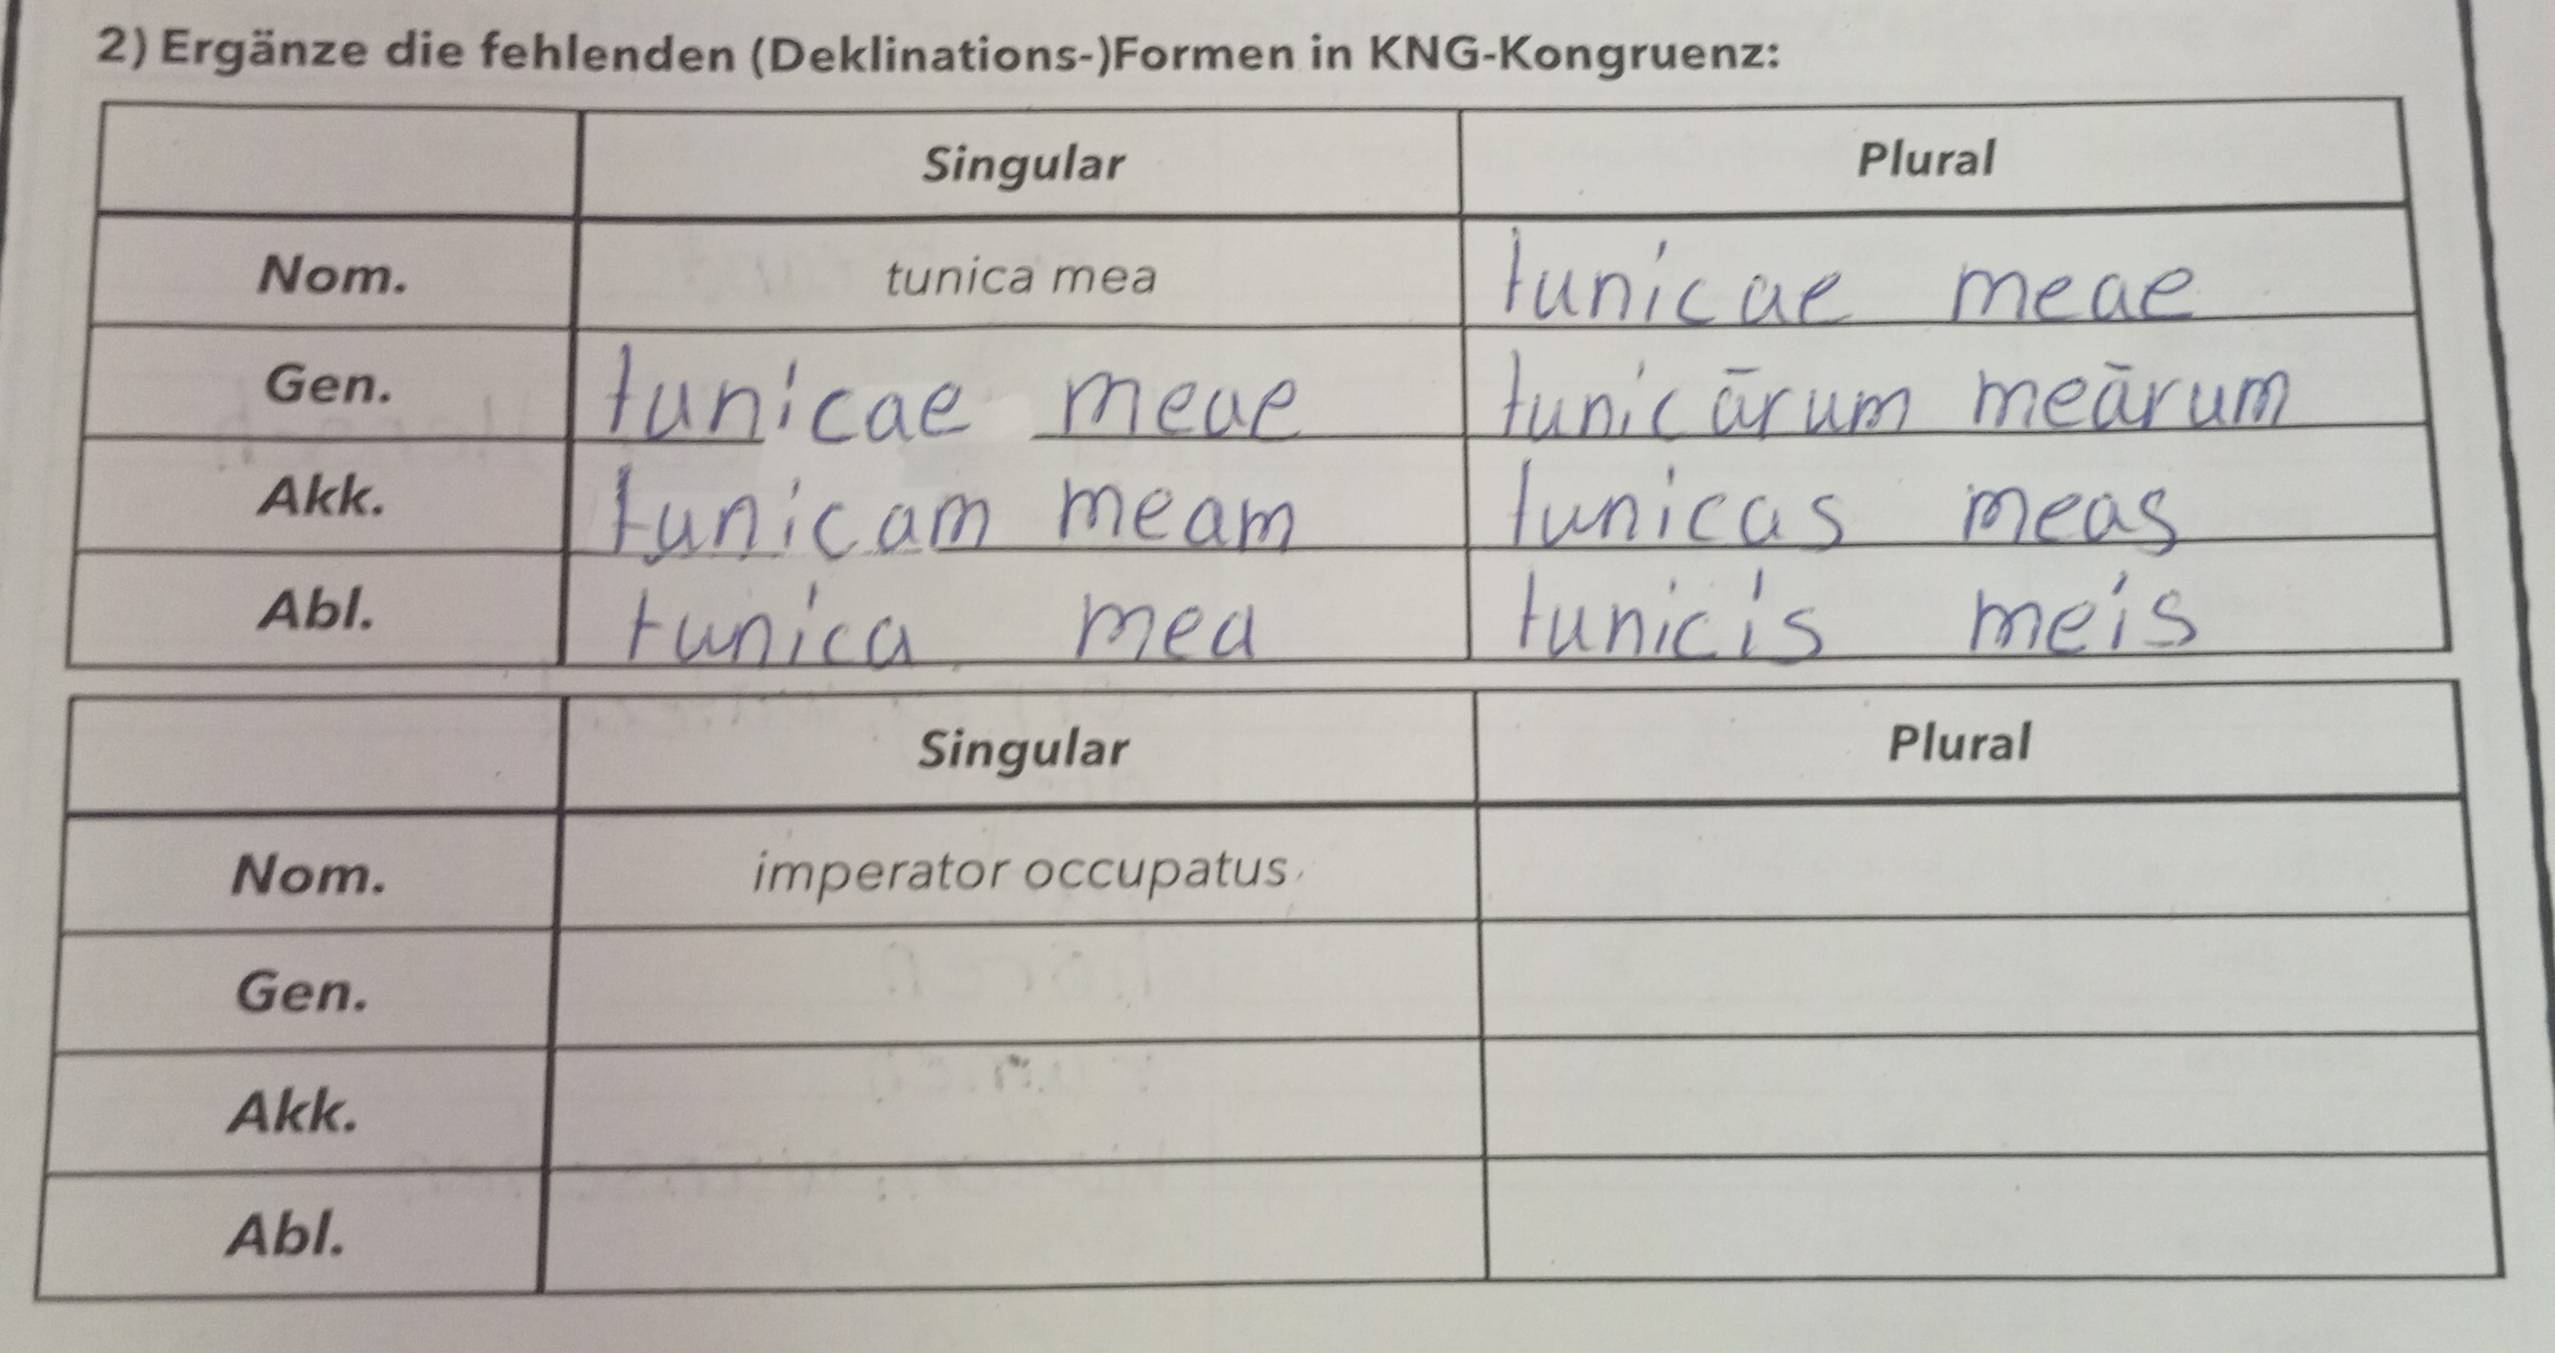 2) Ergänze die fehlenden (Deklinations-)Formen in KNG-Kongruenz:
Singular Plural
Nom. tunica mea tunicae meae
Gen. tunicae meae tunicārum meārum
Akk. tunicam meam tunicas meas
Abl. tunica mea tunicis meis
Singular Plural
Nom. imperator occupatus
Gen.
Akk.
Abl.